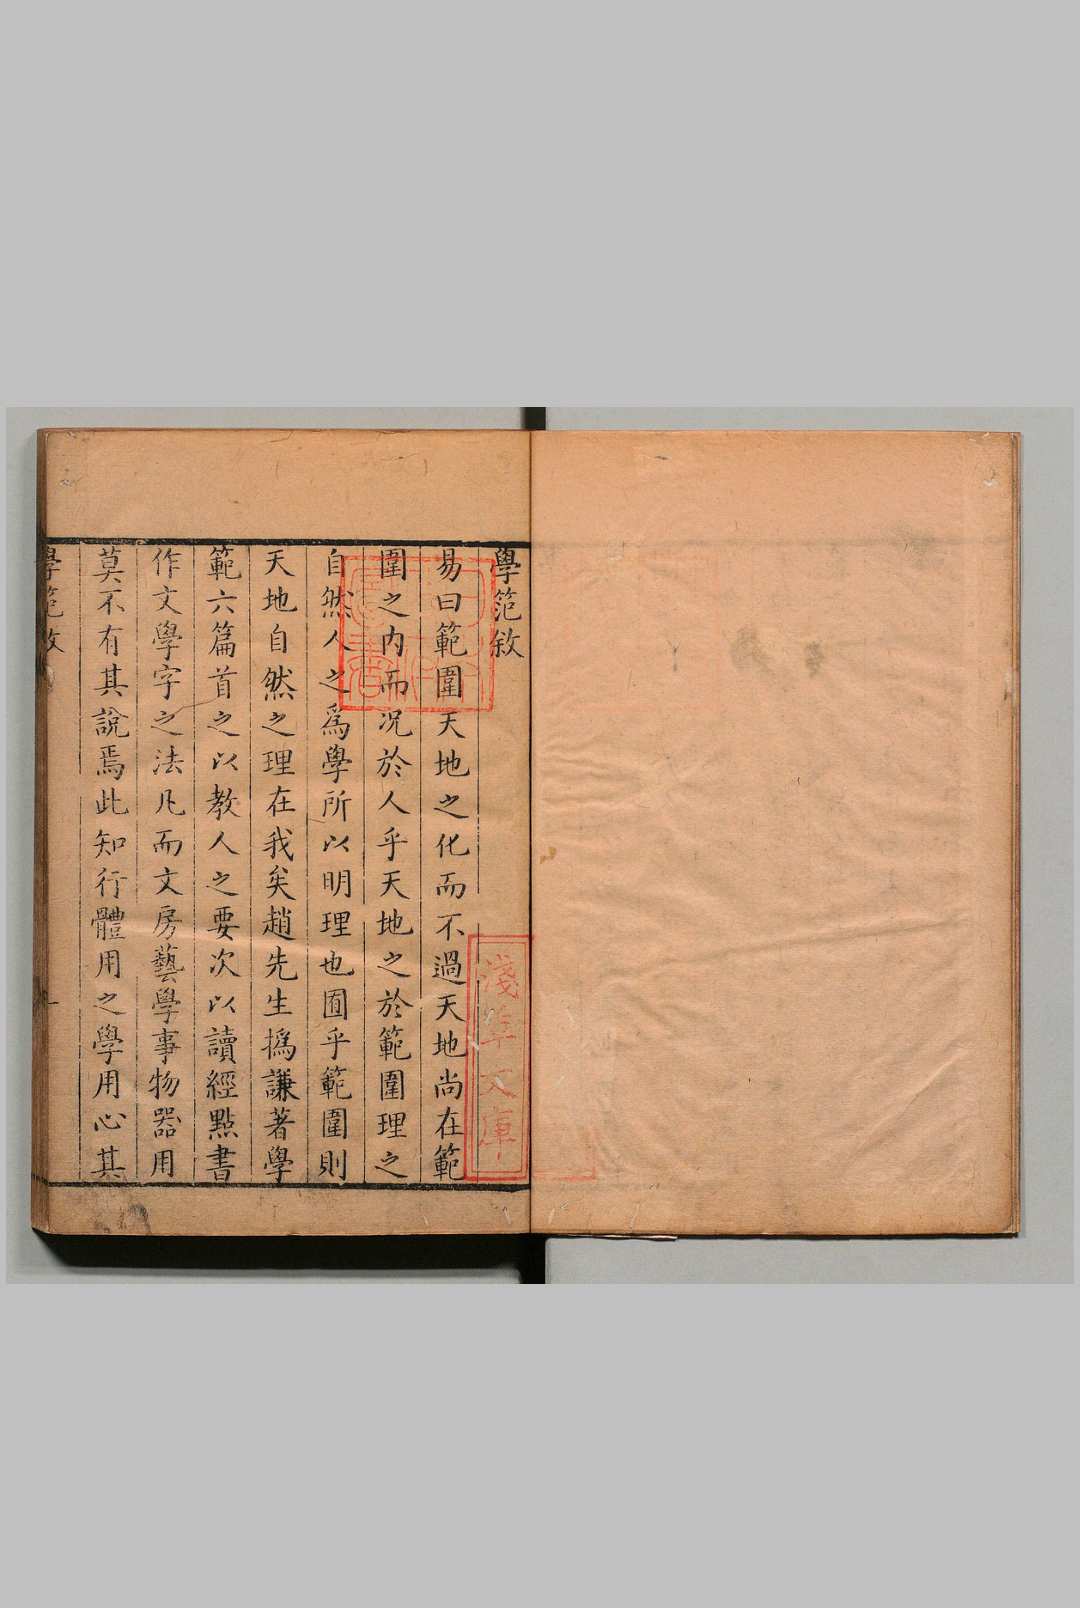 學范敘
易曰範圍天地之化而不過天地尚在範
圍之内而况於人乎天地之於範圍理之
自然人之爲學所以明理也囿乎範圍則
天地自然之理在我矣趙先生撝謙著學
範六篇首之以教人之要次以讀經點書
作文學字之法凡而文房藝學事物器用
莫不有其說焉此知行體用之學用心其
學范敘
一
淺草文庫